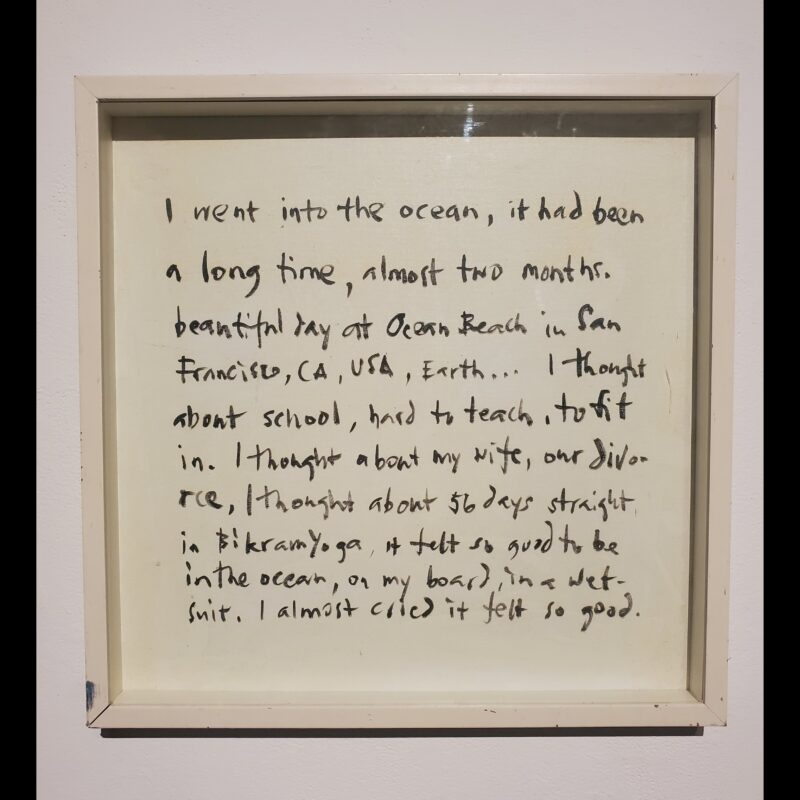 I went into the ocean, it had been
a long time, almost two months.
beautiful day at Ocean Beach in San
Francisco, CA, USA, Earth... I thought
about school, hard to teach, to fit
in. I thought about my wife, our divo-
rce, I thought about 56 days straight
in Bikram Yoga, it felt so good to be
in the ocean, on my board, in a wet-
suit. I almost cried it felt so good.